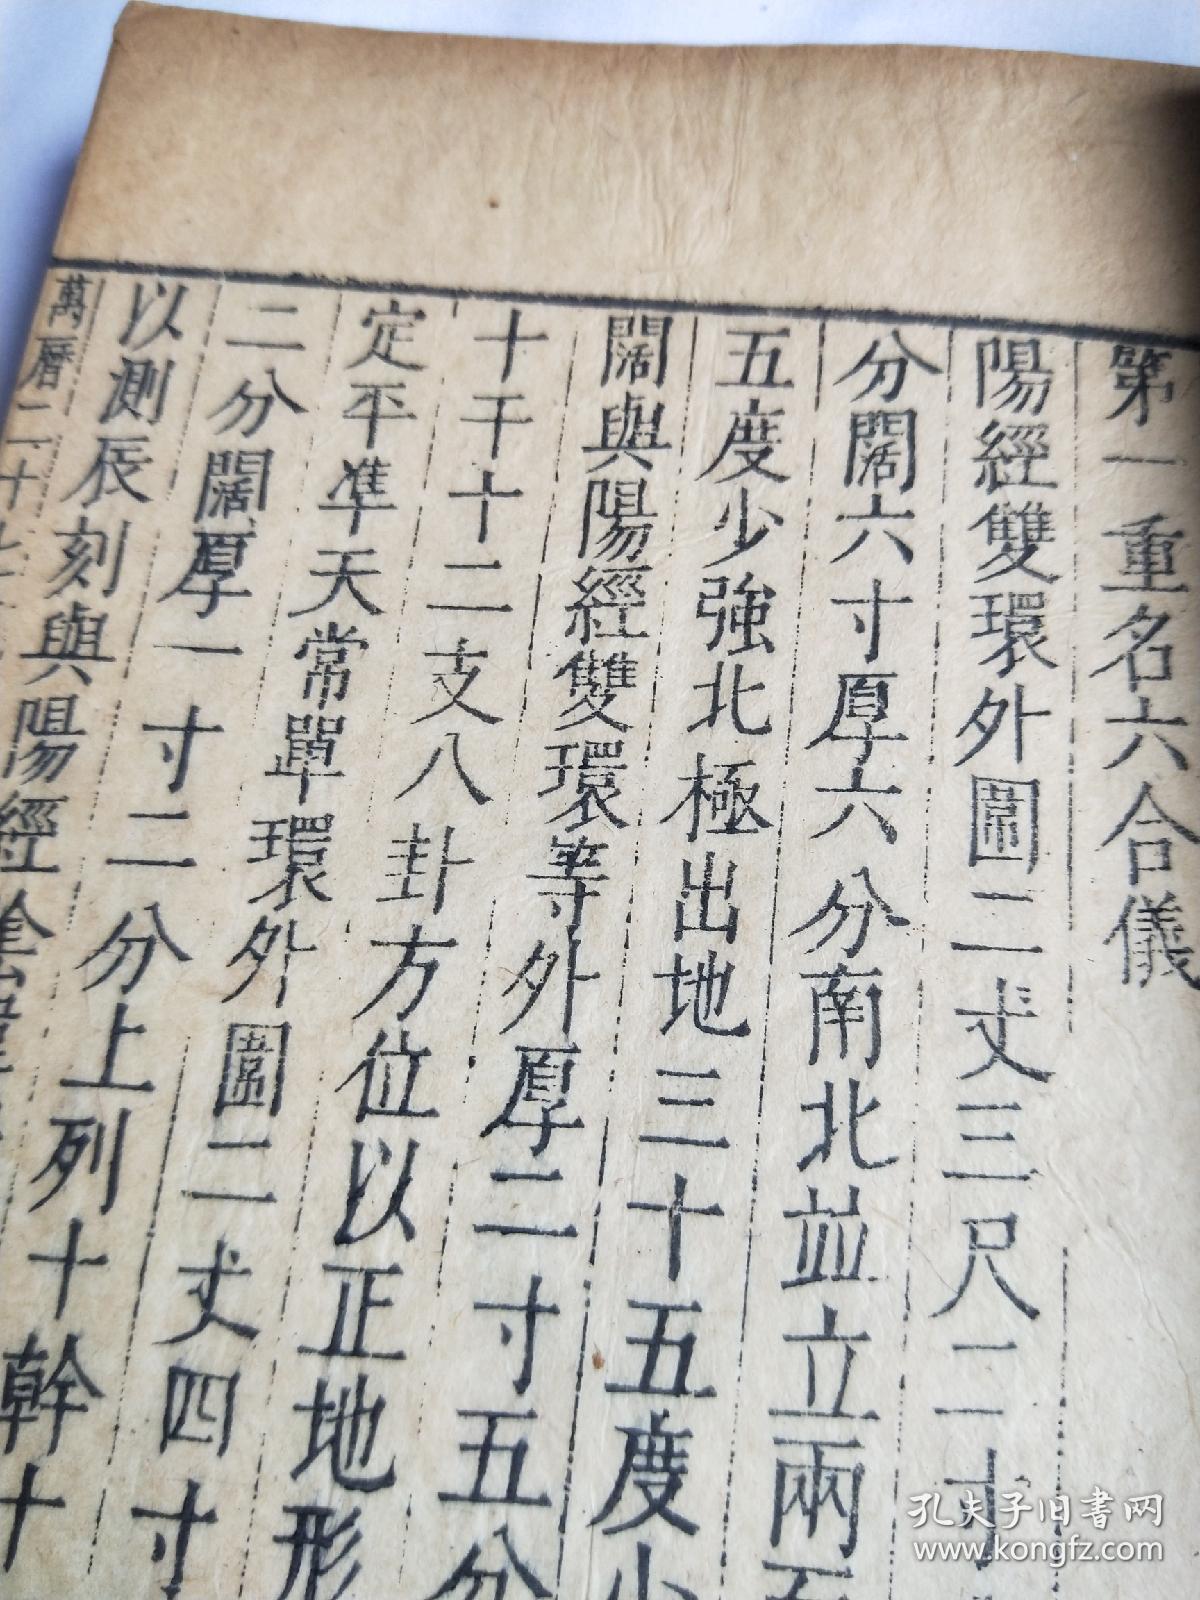 第一重名六合儀
陽經雙環外圍二丈三尺二寸
分闊六寸厚六分南北並立兩
五度少強北極出地三十五度少
闊與陽經雙環等外厚二寸五分
十干十二支八卦方位以正地形
定平準天常單環外圍二丈四寸
二分闊厚一寸二分上列十幹十
以測辰刻與陽經
萬曆二十七
孔夫子旧书网
www.kongfz.com